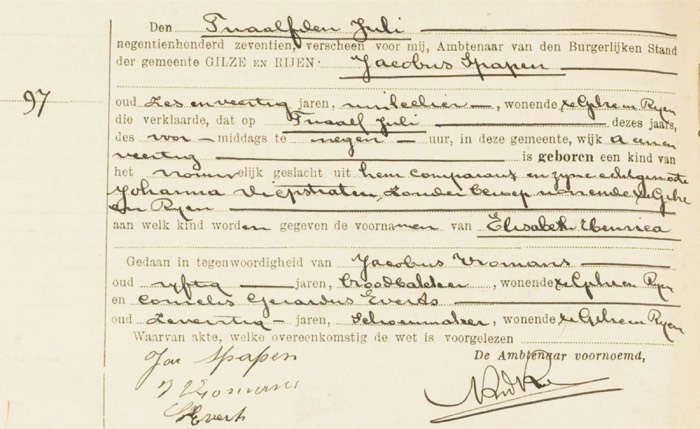 Den Twaalfden Juli
negentienhonderd zeventien, verscheen voor mij, Ambtenaar van den Burgerlijken Stand
der gemeente GILZE EN RIJEN: Jacobus Spapen
97
oud Zes en veertig jaren, wonende te Gilze en Ryen
die verklaarde, dat op Twaalf Juli dezes jaars,
des voor-middags te negen uur, in deze gemeente, wijk A een en
veertig is geboren een kind van
het vrouwelijk geslacht uit hem comparant en zyne echtgenoote
Johanna Diepstraten, zonder beroep wonende te Gilze
en Ryen
aan welk kind worden gegeven de voornamen van Elisabeth Henrica
Gedaan in tegenwoordigheid van Jacobus Vromans
oud vyftig jaren, broodbakker, wonende te Gilze en Ryen
en Cornelis Gerardus Everts
oud zeventig jaren, schoenmaker, wonende te Gilze en Ryen
Waarvan akte, welke overeenkomstig de wet is voorgelezen
De Ambtenaar voornoemd,
Jac Spapen
J Vromans
Everts